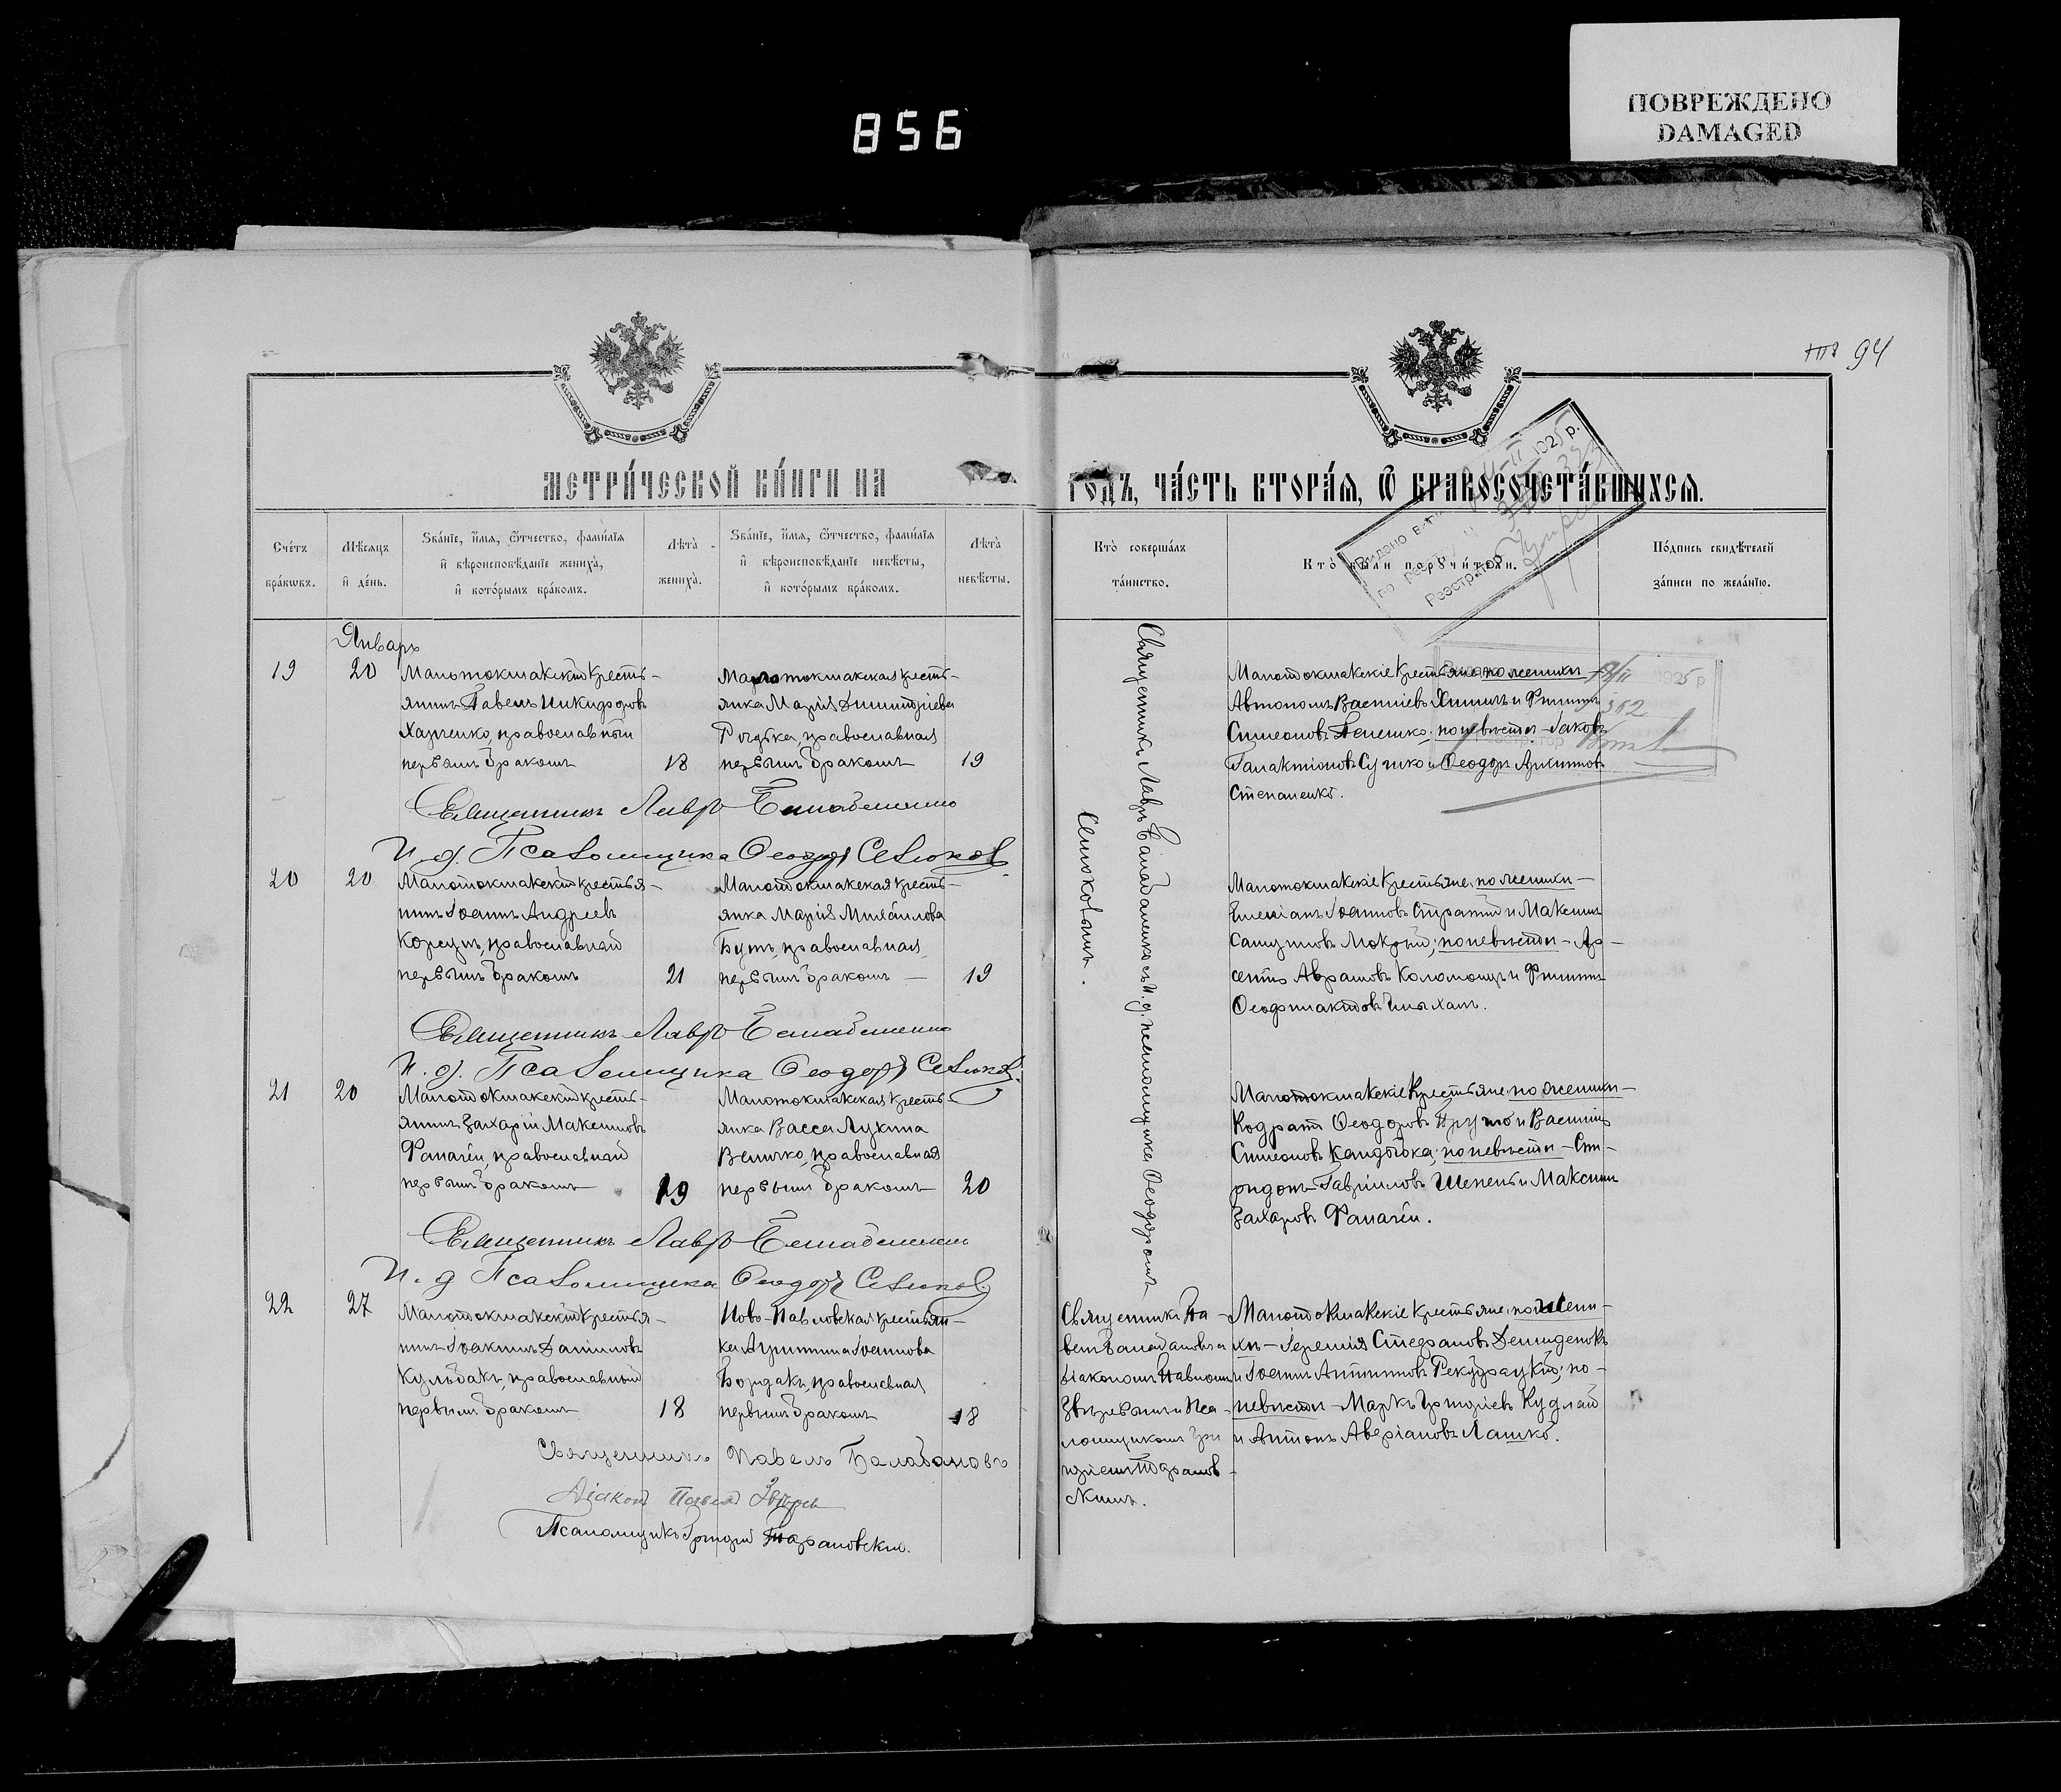 ПОВРЕЖДЕНО
DAMAGED
856
94
МЕТРИ́ЧЕСКОЙ КНИ́ГИ НА
ГОДЪ, ЧА́СТЬ ВТОРА́Я, Ѿ БРАКОСОЧЕТА́ВШИХСЯ.
Сче́тъ бра́кѡвъ.
Мѣ́сяцъ и҆ де́нь.
Зва́нїе, и҆́мя, ѻ҆́тчество, фами́лїя и҆ вѣроисповѣ́данїе жениха̀, и҆ кото́рымъ бра́комъ.
Лѣта̀ жениха̀.
Зва́нїе, и҆́мя, ѻ҆́тчество, фами́лїя и҆ вѣроисповѣ́данїе невѣ́сты, и҆ кото́рымъ бра́комъ.
Лѣта̀ невѣ́сты.
Кто̀ соверша́лъ та́инство.
Кто̀ бы́ли поручи́тели.
По́дпись свидѣ́телей за́писи по жела́нїю.
Январь
19
20
Малотокмакскій крестья-
нинъ Павелъ Никифоровъ
Харченко, православный
первымъ бракомъ
18
Малотокмакская кресть-
янка Марія Димитріева
Редька, православная
первымъ бракомъ
19
Малотокмакскіе крестьяне: по женихи
Автономъ Василіевъ Химичъ и Филиппъ
Симеоновъ Лепешко; по невѣсты Іаковъ
Галактіоновъ Сучко и Ѳеодоръ
Степаненко.
Священникъ Лавръ Балабаненко
И. д. Псаломщика Ѳеодоръ Сѣлюковъ
20
20
Малотокмакскій крестья-
нинъ Іоаннъ Андреевъ
Корсунъ, православный
первымъ бракомъ
21
Малотокмакская кресть-
янка Марія Михаилова
Бутъ, православная
первымъ бракомъ
19
Малотокмакскіе крестьяне: по женихи
Іоанновъ и Максимъ
Мокрый; по невѣсты Ар-
сеній Аврамовъ Коломоецъ и Филиппъ
Ѳеофилактовъ
Священникъ Лавръ Балабаненко
И. д. Псаломщика Ѳеодоръ Сѣлюковъ
21
20
Малотокмакскій кресть-
янинъ Захарій Максимовъ
Фалачѣй, православный
первымъ бракомъ
19
Малотокмакская кресть-
янка Васса Лукина
Величко, православная
первымъ бракомъ
20
Малотокмакскіе крестьяне: по женихи
Кодратъ Ѳеодоровъ и Василій
Симеоновъ Кандыбка; по невѣсты Спи-
ридонъ Гавриловъ Шепель и Максимъ
Захаровъ Фалачѣй.
Священникъ Лавръ Балабаненко
И. д. Псаломщика Ѳеодоръ Сѣлюковъ
Священникъ Лавръ Балабаненко съ и. д. псаломщика Ѳеодоромъ
Сѣлюковымъ.
22
27
Малотокмакскій крестья-
нинъ Іоакимъ Даніиловъ
Кульбакъ, православный
первымъ бракомъ
18
Ново-Павловская крестьян-
ка Агриппина Іоаннова
Бордакъ, православная
первымъ бракомъ
18
Священникъ Па-
велъ Балабановъ съ
діакономъ Павломъ
Звѣревымъ и пса-
ломщикомъ Гри-
горіемъ Таранов-
скимъ.
Малотокмакскіе крестьяне: по жени-
хи Іеремія Стефановъ Демиденко
и Іоаннъ; по-
невѣсты Маркъ Григоріевъ Кудлай
и Антонъ Аверіановъ Лашко.
Священникъ Павелъ Балабановъ
Діаконъ Павелъ Звѣревъ
Псаломщикъ Григорій Тарановскій.